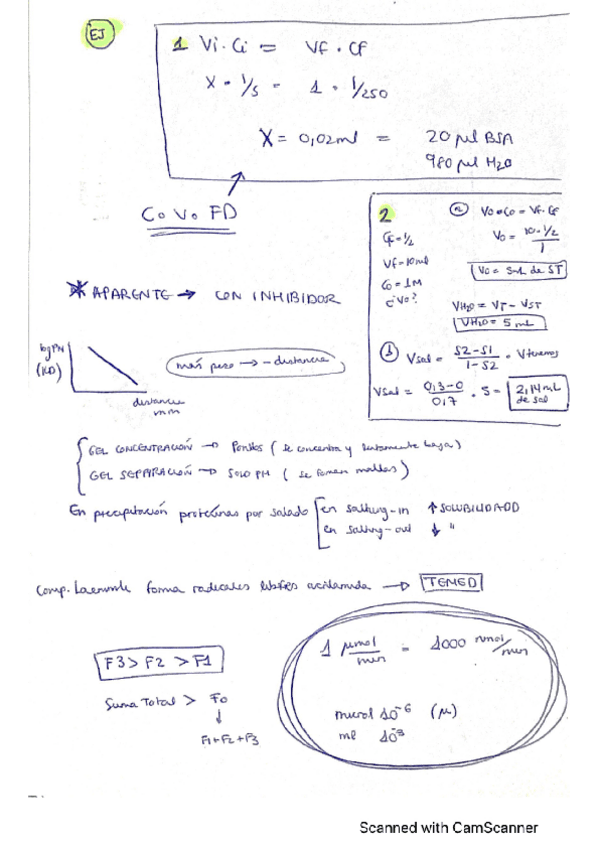 EJ
1 Vi · Ci = Vf · Cf
X · 1/5 = 1 · 1/250
X = 0,02ml = 20 µl BSA
980 µl H2O
Co Vo FD
2
Cf = 1/2
Vf = 10ml
Co = 1M
¿Vo?
Vo · Co = Vf · Cf
Vo = 10 · 1/2 / 1
Vo = 5mL de ST
VH2O = VT - VST
VH2O = 5 mL
Vsal = S2 - S1 / 1 - S2 · Vtenemos
Vsal = 0,3 - 0 / 0,7 · 5 = 2,14 mL de sal
* APARENTE → CON INHIBIDOR
log PM
(KD)
distancia
mm
más peso → - distancia
GEL CONCENTRACIÓN → (se concentra y lentamente baja)
GEL SEPARACIÓN → SOLO PM (se forman mallas)
En precipitación proteínas por salado
en salting-in ↑ SOLUBILIDAD
en salting-out ↓ "
forma radicales libres acrilamida → TEMED
F3 > F2 > F1
Suma Total > F0
↓
F1+F2+F3
1 µmol/min = 1000 nmol/min
10⁻⁶ (µ)
ml 10⁻³
Scanned with CamScanner